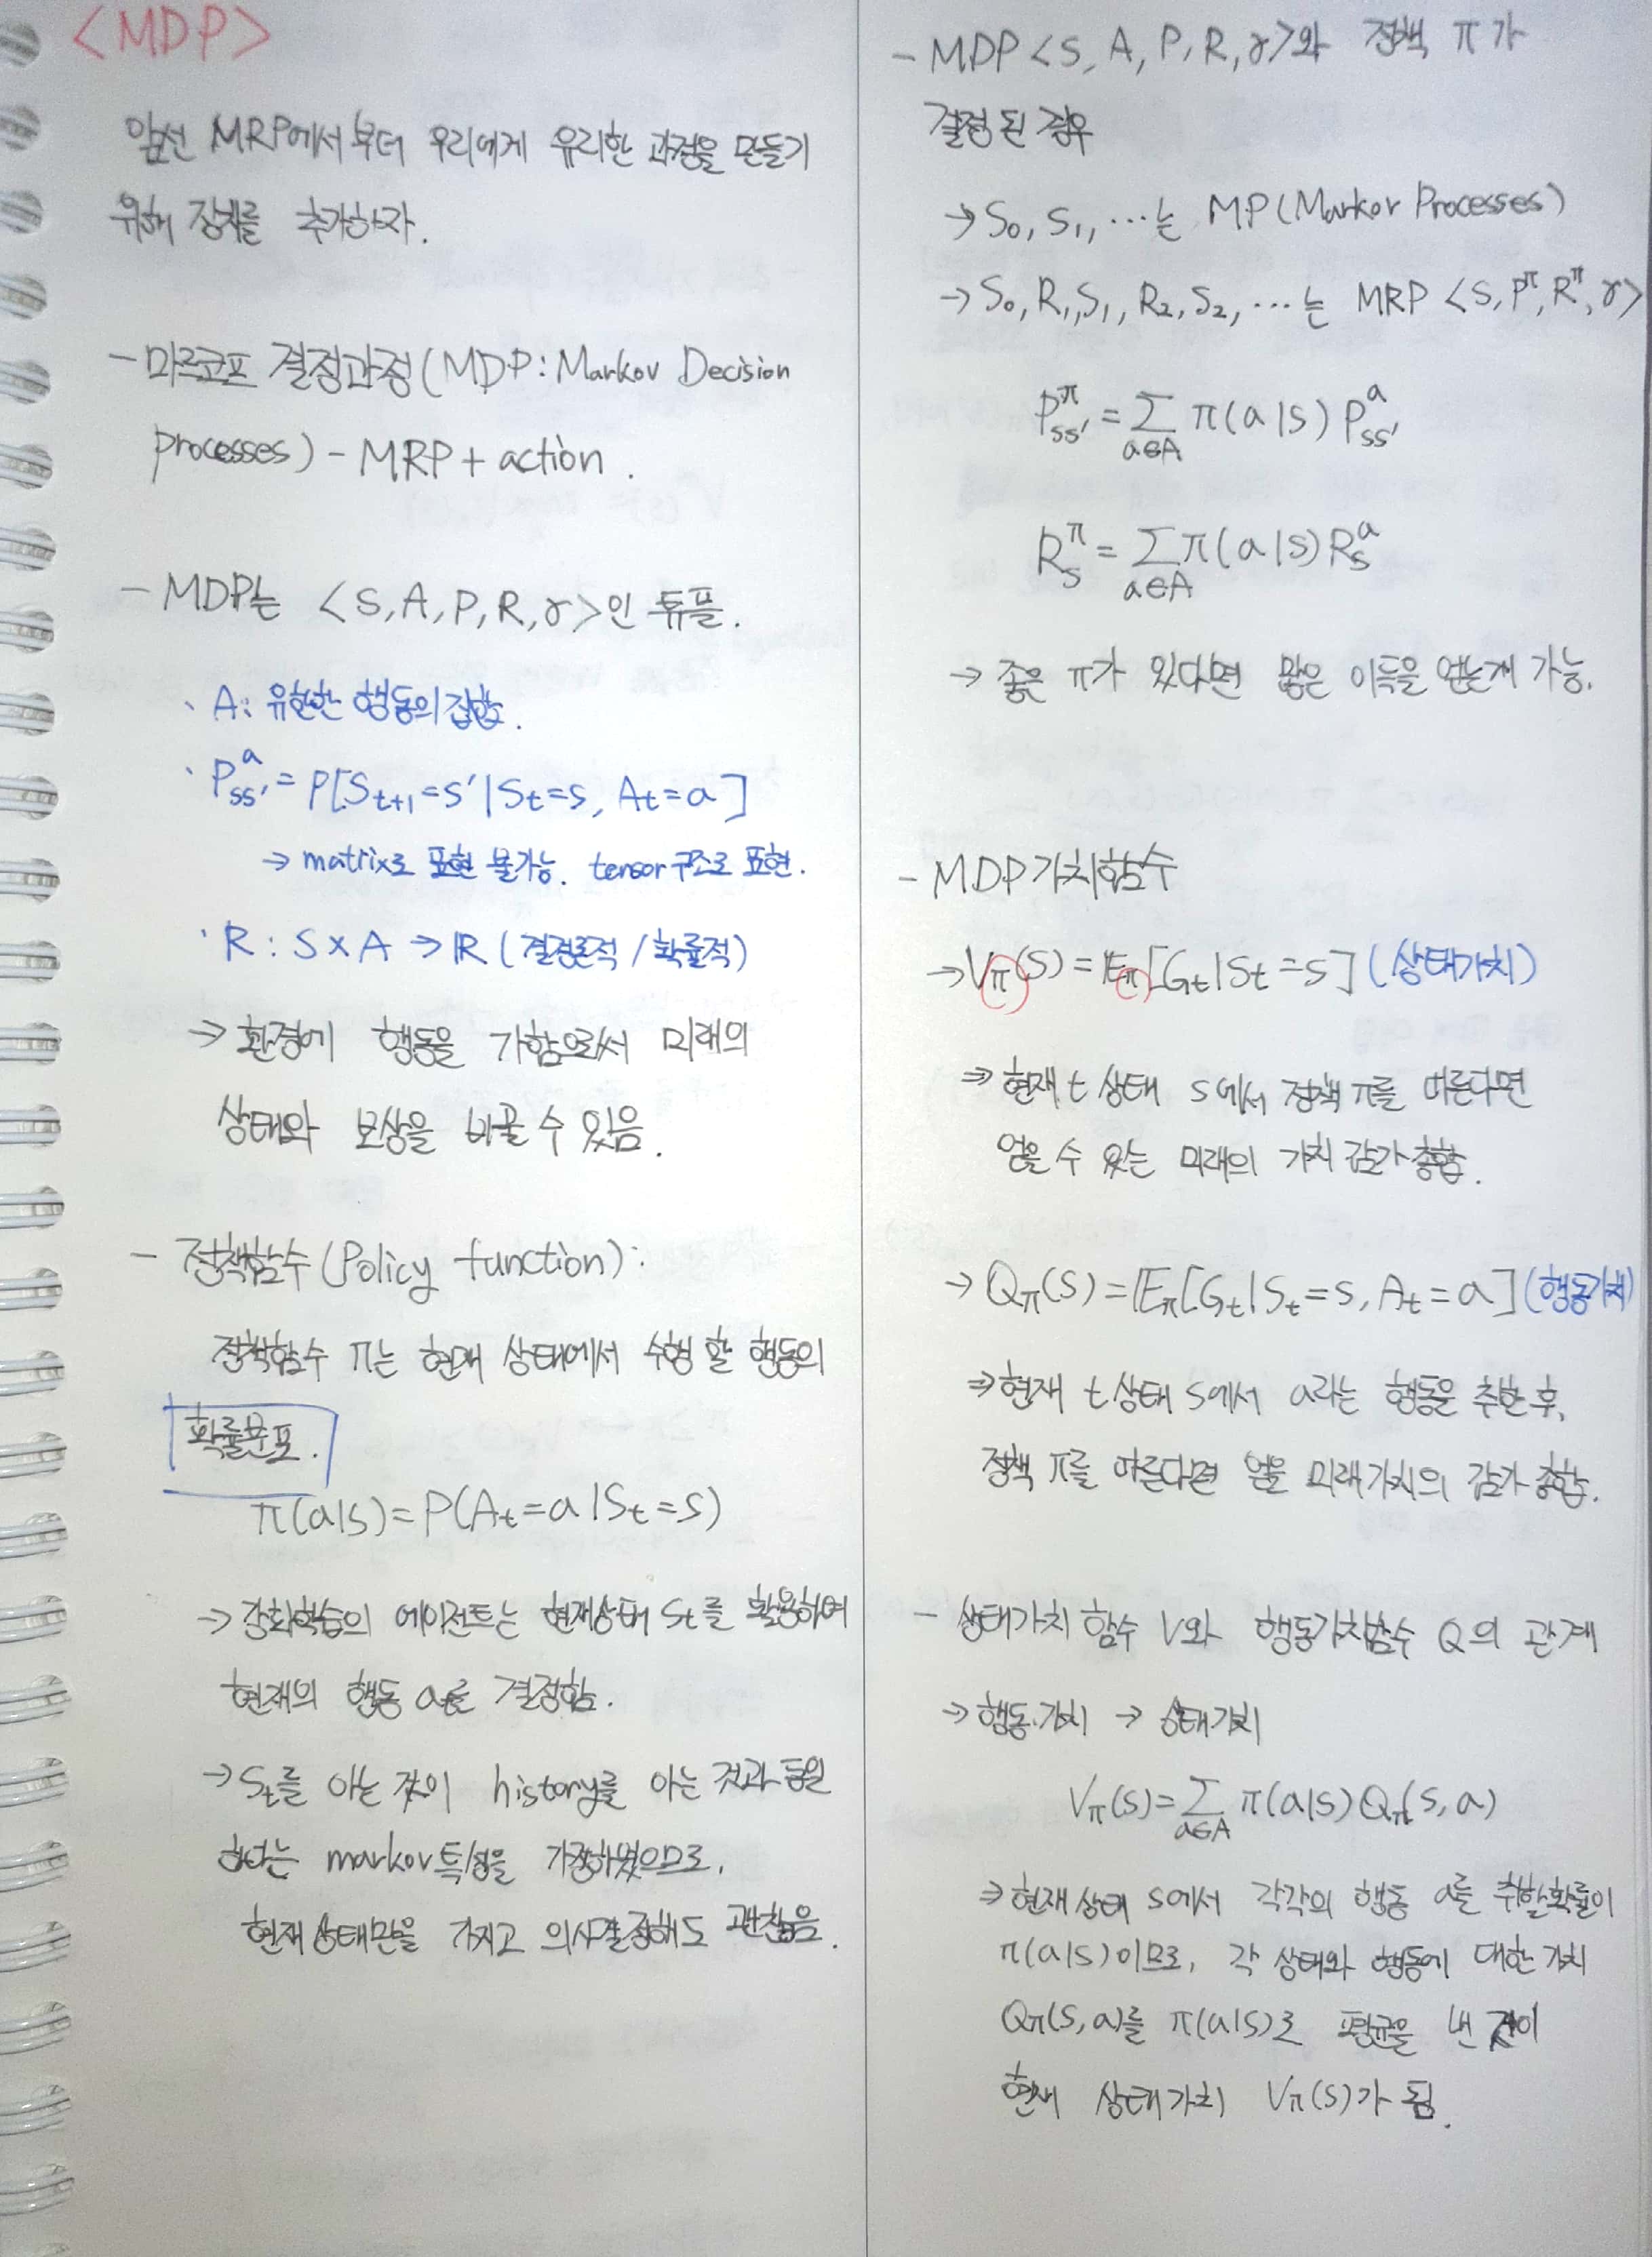 <MDP>
앞선 MRP에서부터 우리에게 유리한 과정을 만들기
위해 장치를 추가하자.
- 마르코프 결정과정(MDP: Markov Decision
processes) - MRP + action.
- MDP는 <S, A, P, R, γ>인 튜플.
· A: 유한한 행동의 집합.
· P^a_ss' = P[S_t+1 = s' | S_t = s, A_t = a]
→ matrix로 표현 불가능. tensor구조로 표현.
· R : S × A → ℝ (결정론적 / 확률적)
→ 환경에 행동을 가함으로서 미래의
상태와 보상을 바꿀 수 있음.
- 정책함수(Policy function):
정책함수 π는 현재 상태에서 수행 할 행동의
확률분포.
π(a|s) = P(A_t = a | S_t = s)
→ 강화학습의 에이전트는 현재상태 S_t를 활용하여
현재의 행동 a를 결정함.
→ S_t를 아는 것이 history를 아는 것과 동일
하다는 markov 특성을 가정하였으므로,
현재 상태만을 가지고 의사결정해도 괜찮음.
- MDP <S, A, P, R, γ>와 정책 π가
결정 된 경우
→ S_0, S_1, ···는 MP(Markov Processes)
→ S_0, R_1, S_1, R_2, S_2, ···는 MRP <S, P^π, R^π, γ>
P^π_ss' = Σ_a∈A π(a|s) P^a_ss'
R^π_s = Σ_a∈A π(a|s) R^a_s
→ 좋은 π가 있다면 많은 이득을 얻는게 가능.
- MDP 가치함수
→ V_π(s) = 𝔼_π[G_t | S_t = s] (상태가치)
⇒ 현재 t 상태 s에서 정책 π를 따른다면
얻을 수 있는 미래의 가치 감가 총합.
→ Q_π(s) = 𝔼_π[G_t | S_t = s, A_t = a] (행동가치)
⇒ 현재 t 상태 s에서 a라는 행동을 취한 후,
정책 π를 따른다면 얻을 미래가치의 감가 총합.
- 상태가치 함수 V와 행동가치함수 Q의 관계
→ 행동가치 → 상태가치
V_π(s) = Σ_a∈A π(a|s) Q_π(s, a)
⇒ 현재상태 s에서 각각의 행동 a를 취할확률이
π(a|s)이므로, 각 상태와 행동에 대한 가치
Q_π(s, a)를 π(a|s)로 평균을 낸 것이
현재 상태가치 V_π(s)가 됨.